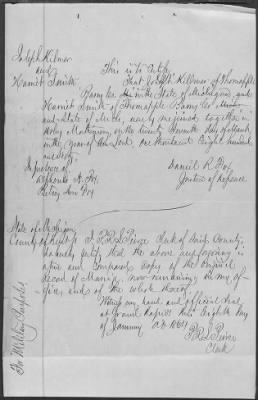 Joseph Kilmer
and
Harriet Smith
This is to Certify
That Joseph Killmer of Thornapple
Barry Co in the State of Michigan and
Harriet Smith of Thornapple Barry Co
and State of Mich, were joined together in
Holy Matrimony on the twenty Seventh day of March
in the year of our Lord, one thousand Eight hundred
and sixty
In presence of
Alphonso A. Fox
Betsey Ann Fox
Daniel R Fox
Justice of the peace
State of Michigan
County of Kent
I P R L Peirce Clerk of said County
hereby certify that the above and foregoing is
a true and compared copy of the original
Record of Marriage now remaining in my of-
fice, and of the whole thereof
Witness my hand and official Seal
at Grand Rapids this Eighth day
of January AD 1864
P R L Peirce
Clerk
For Military Purposes